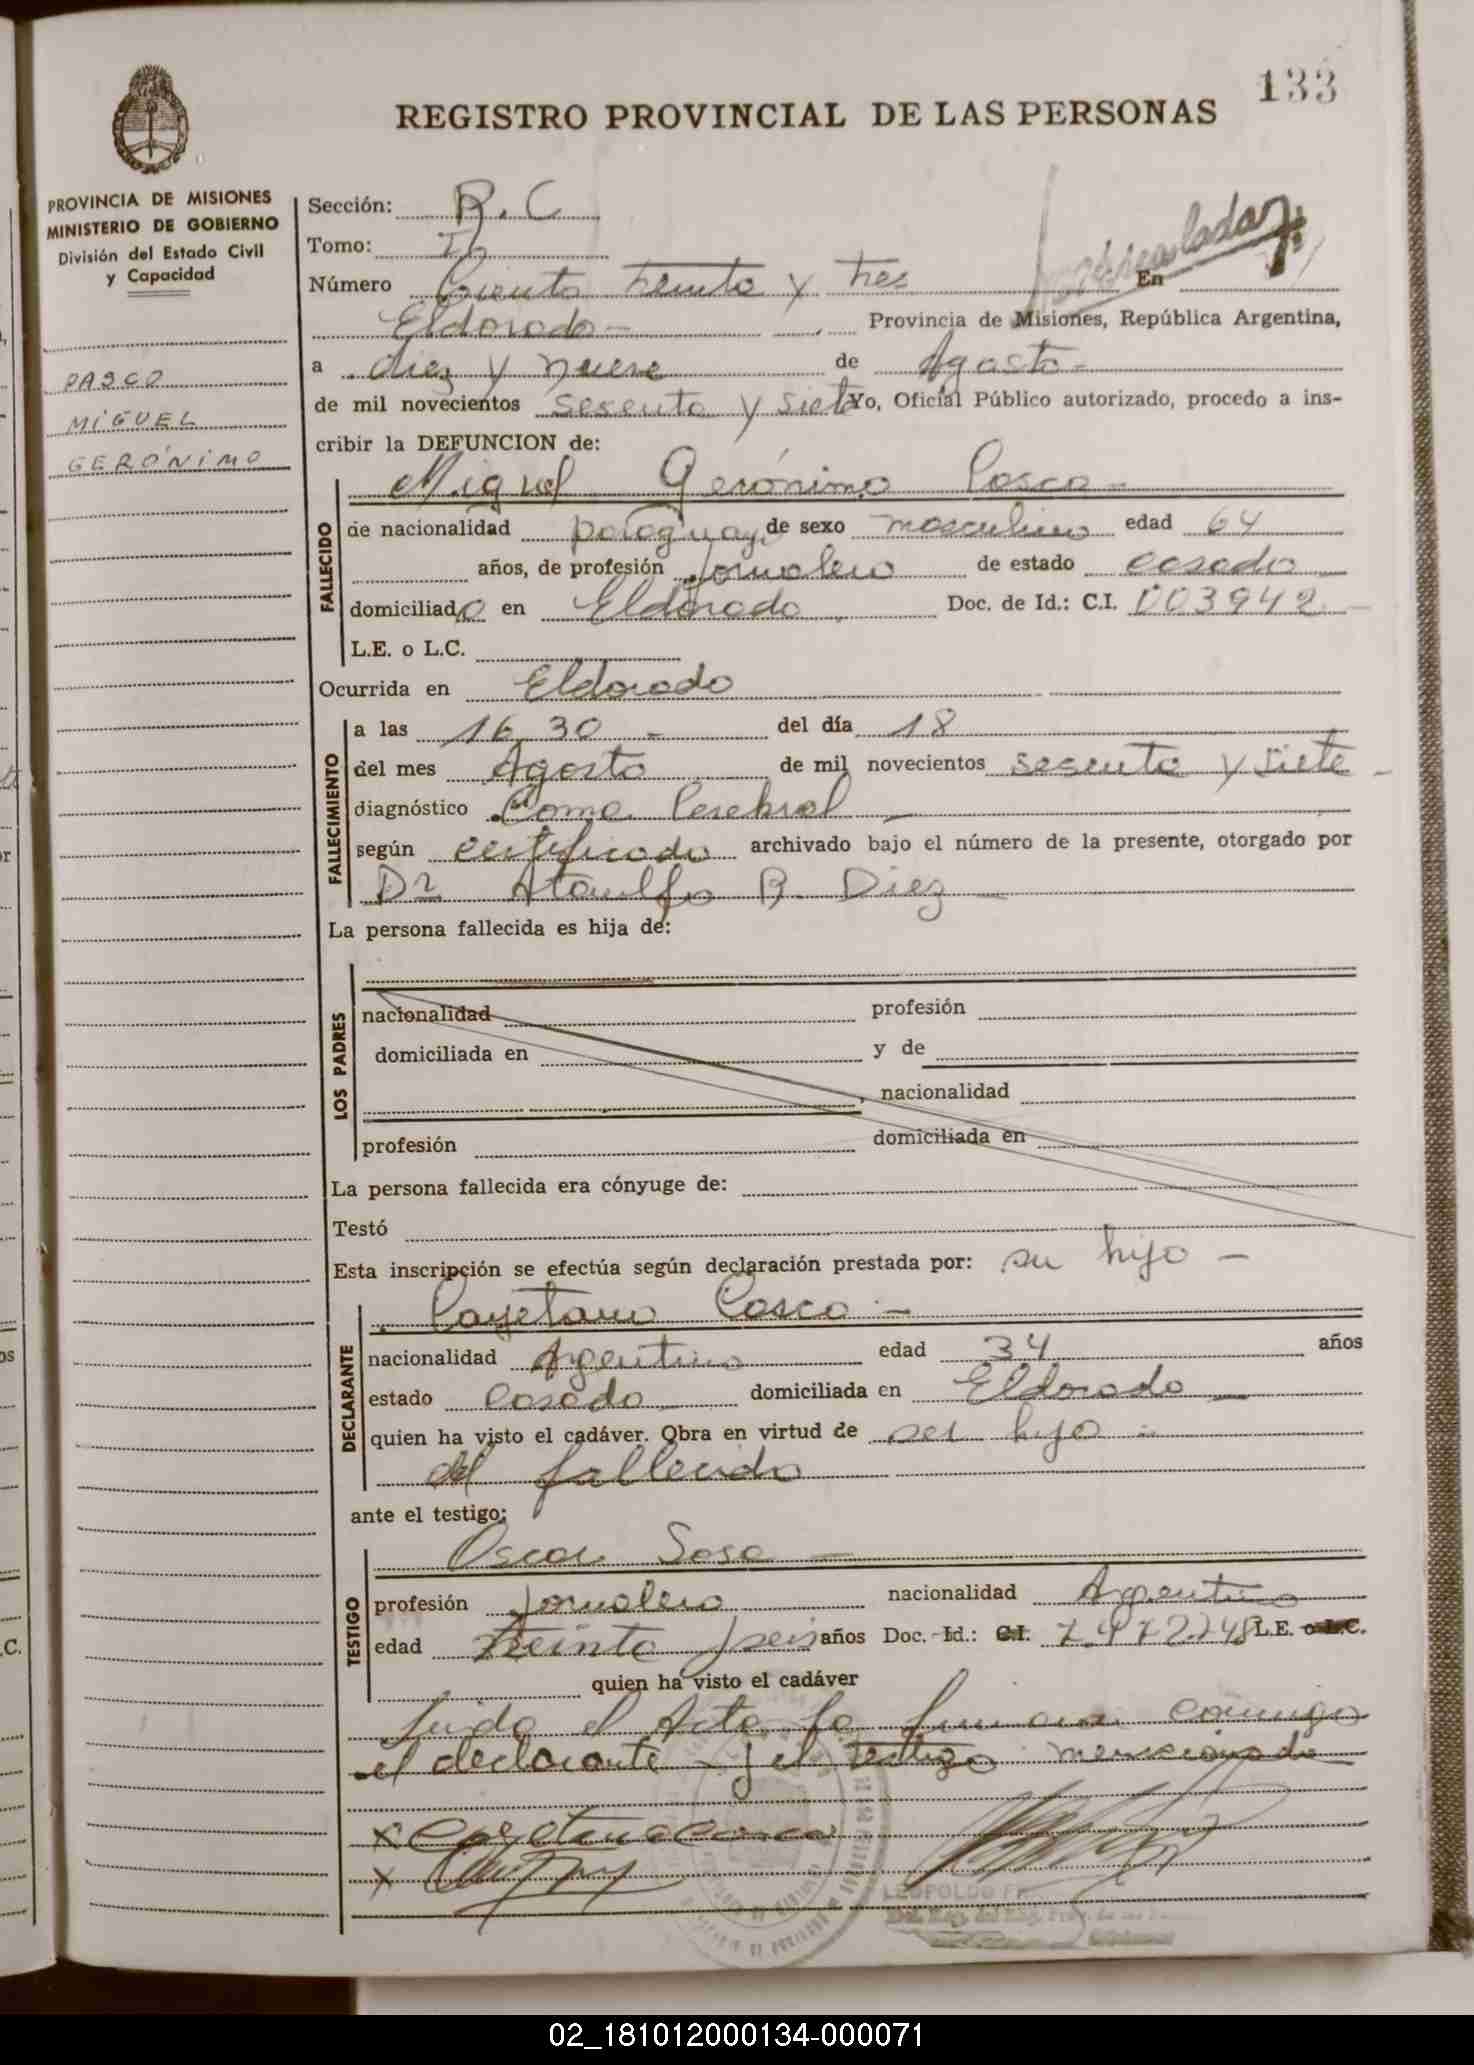 133
REGISTRO PROVINCIAL DE LAS PERSONAS
PROVINCIA DE MISIONES
MINISTERIO DE GOBIERNO
División del Estado Civil
y Capacidad
PASCO
MIGUEL
GERÓNIMO
Sección: R. C
Tomo: II
Número Ciento treinta y tres En
Eldorado - Provincia de Misiones, República Argentina,
a diez y nueve de Agosto -
de mil novecientos sesenta y siete Yo, Oficial Público autorizado, procedo a ins-
cribir la DEFUNCION de:
Miguel Gerónimo
FALLECIDO
de nacionalidad paraguay. de sexo masculino edad 64
años, de profesión Jornalero de estado casado
domiciliado en Eldorado Doc. de Id.: C.I. 003942 -
L.E. o L.C.
Ocurrida en Eldorado
FALLECIMIENTO
a las 16 30 - del día 18
del mes Agosto de mil novecientos sesenta y siete -
diagnóstico Coma Cerebral -
según certificado archivado bajo el número de la presente, otorgado por
Dr Ataulfo B. Diez -
La persona fallecida es hija de:
LOS PADRES
nacionalidad profesión
domiciliada en y de
, nacionalidad
profesión domiciliada en
La persona fallecida era cónyuge de:
Testó
Esta inscripción se efectúa según declaración prestada por: su hijo -
DECLARANTE
Cayetano
nacionalidad Argentino edad 34 años
estado casado domiciliada en Eldorado -
quien ha visto el cadáver. Obra en virtud de ser hijo -
del fallecido
ante el testigo:
TESTIGO
Oscar Sosa -
profesión Jornalero nacionalidad Argentino
edad treinta y seis años Doc. Id.: C.I. L.E. o L.C.
quien ha visto el cadáver
Leida el Acta la firman conmigo
el declarante y el testigo mencionado
LEOPOLDO
02_181012000134-000071